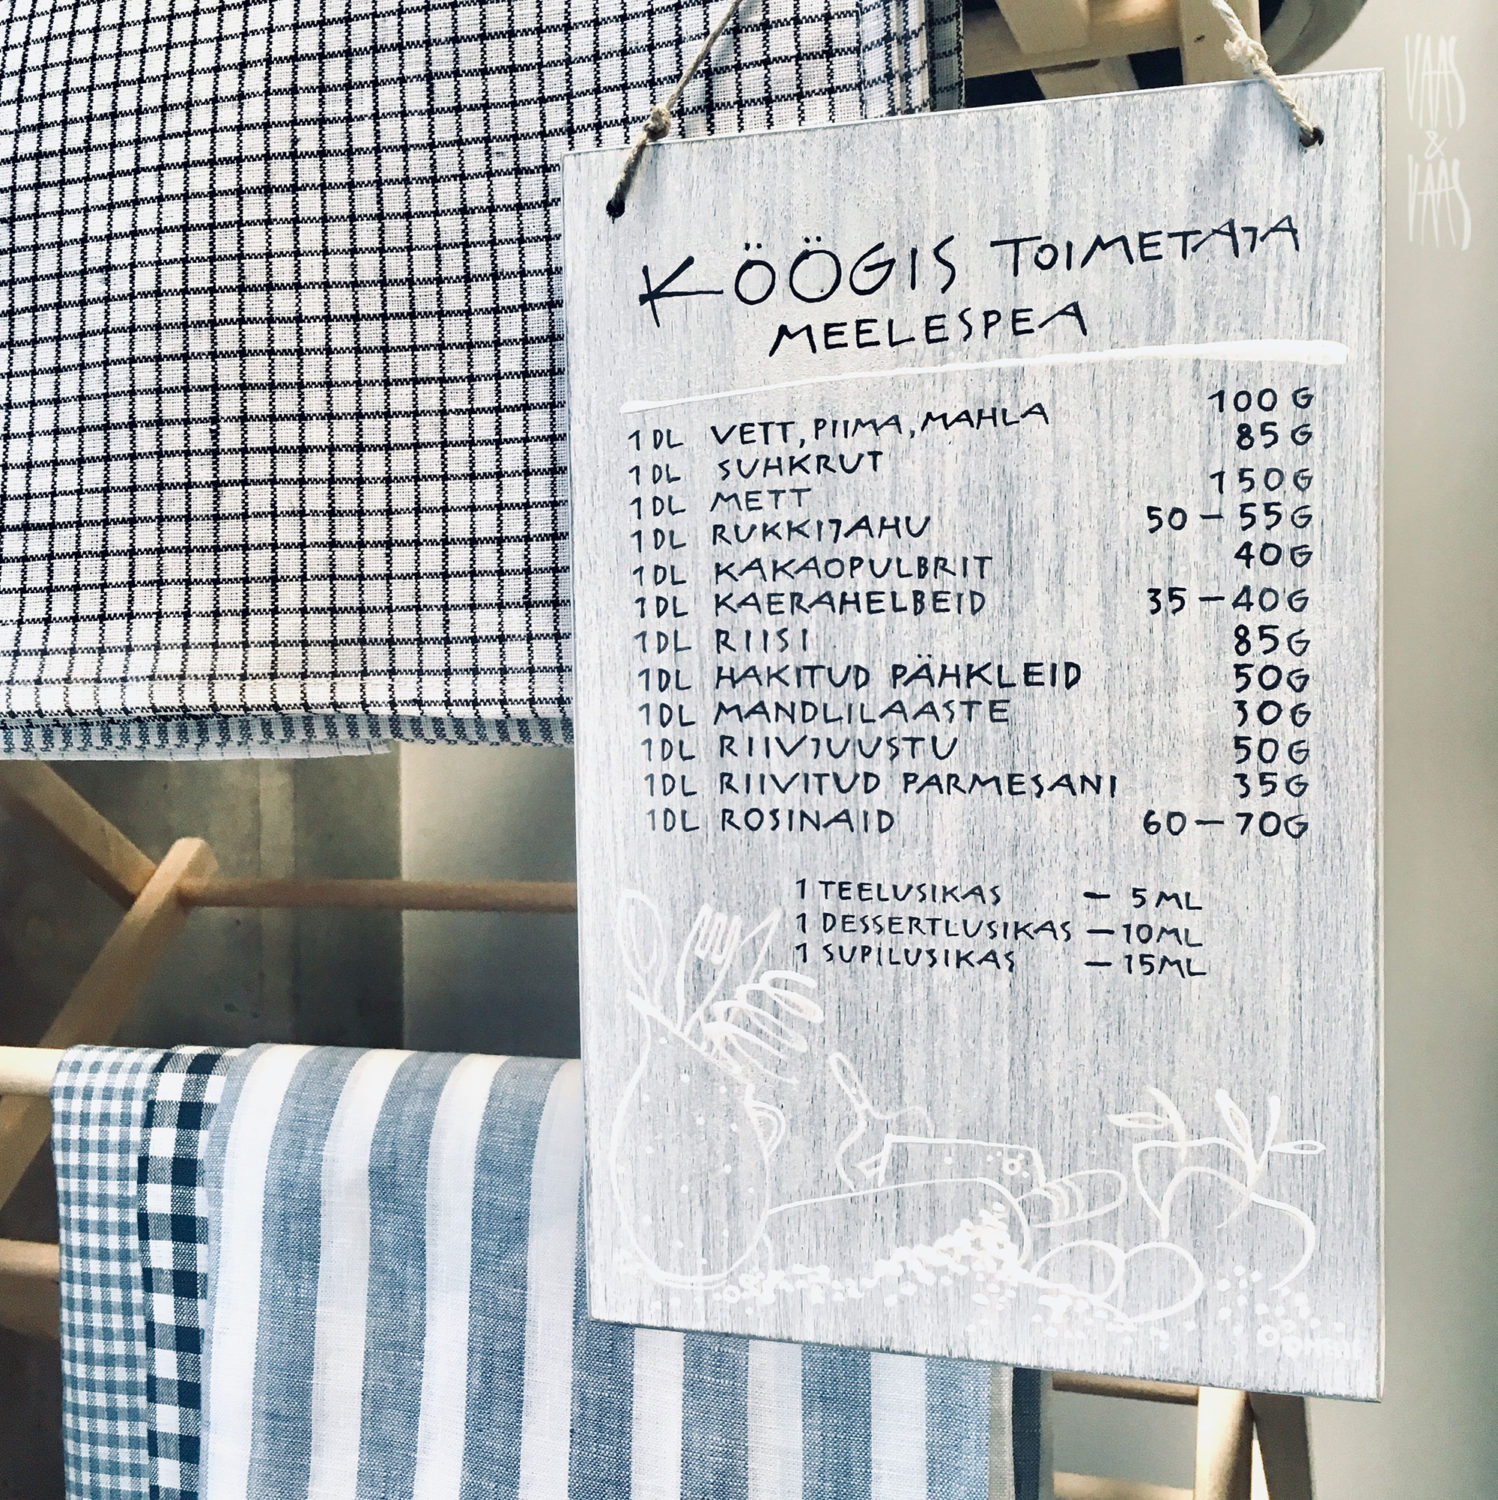 KÖÖGIS TOIMETAJA
MEELESPEA
1 DL VETT, PIIMA, MAHLA 100 G
1 DL SUHKRUT 85 G
1 DL METT 150 G
1 DL RUKKIJAHU 50 – 55 G
1 DL KAKAOPULBRIT 40 G
1 DL KAERAHELBEID 35 – 40 G
1 DL RIISI 85 G
1 DL HAKITUD PÄHKLEID 50 G
1 DL MANDLILAASTE 30 G
1 DL RIIVJUUSTU 50 G
1 DL RIIVITUD PARMESANI 35 G
1 DL ROSINAID 60 – 70 G
1 TEELUSIKAS – 5 ML
1 DESSERTLUSIKAS – 10 ML
1 SUPILUSIKAS – 15 ML
VAAS
&
VAAS